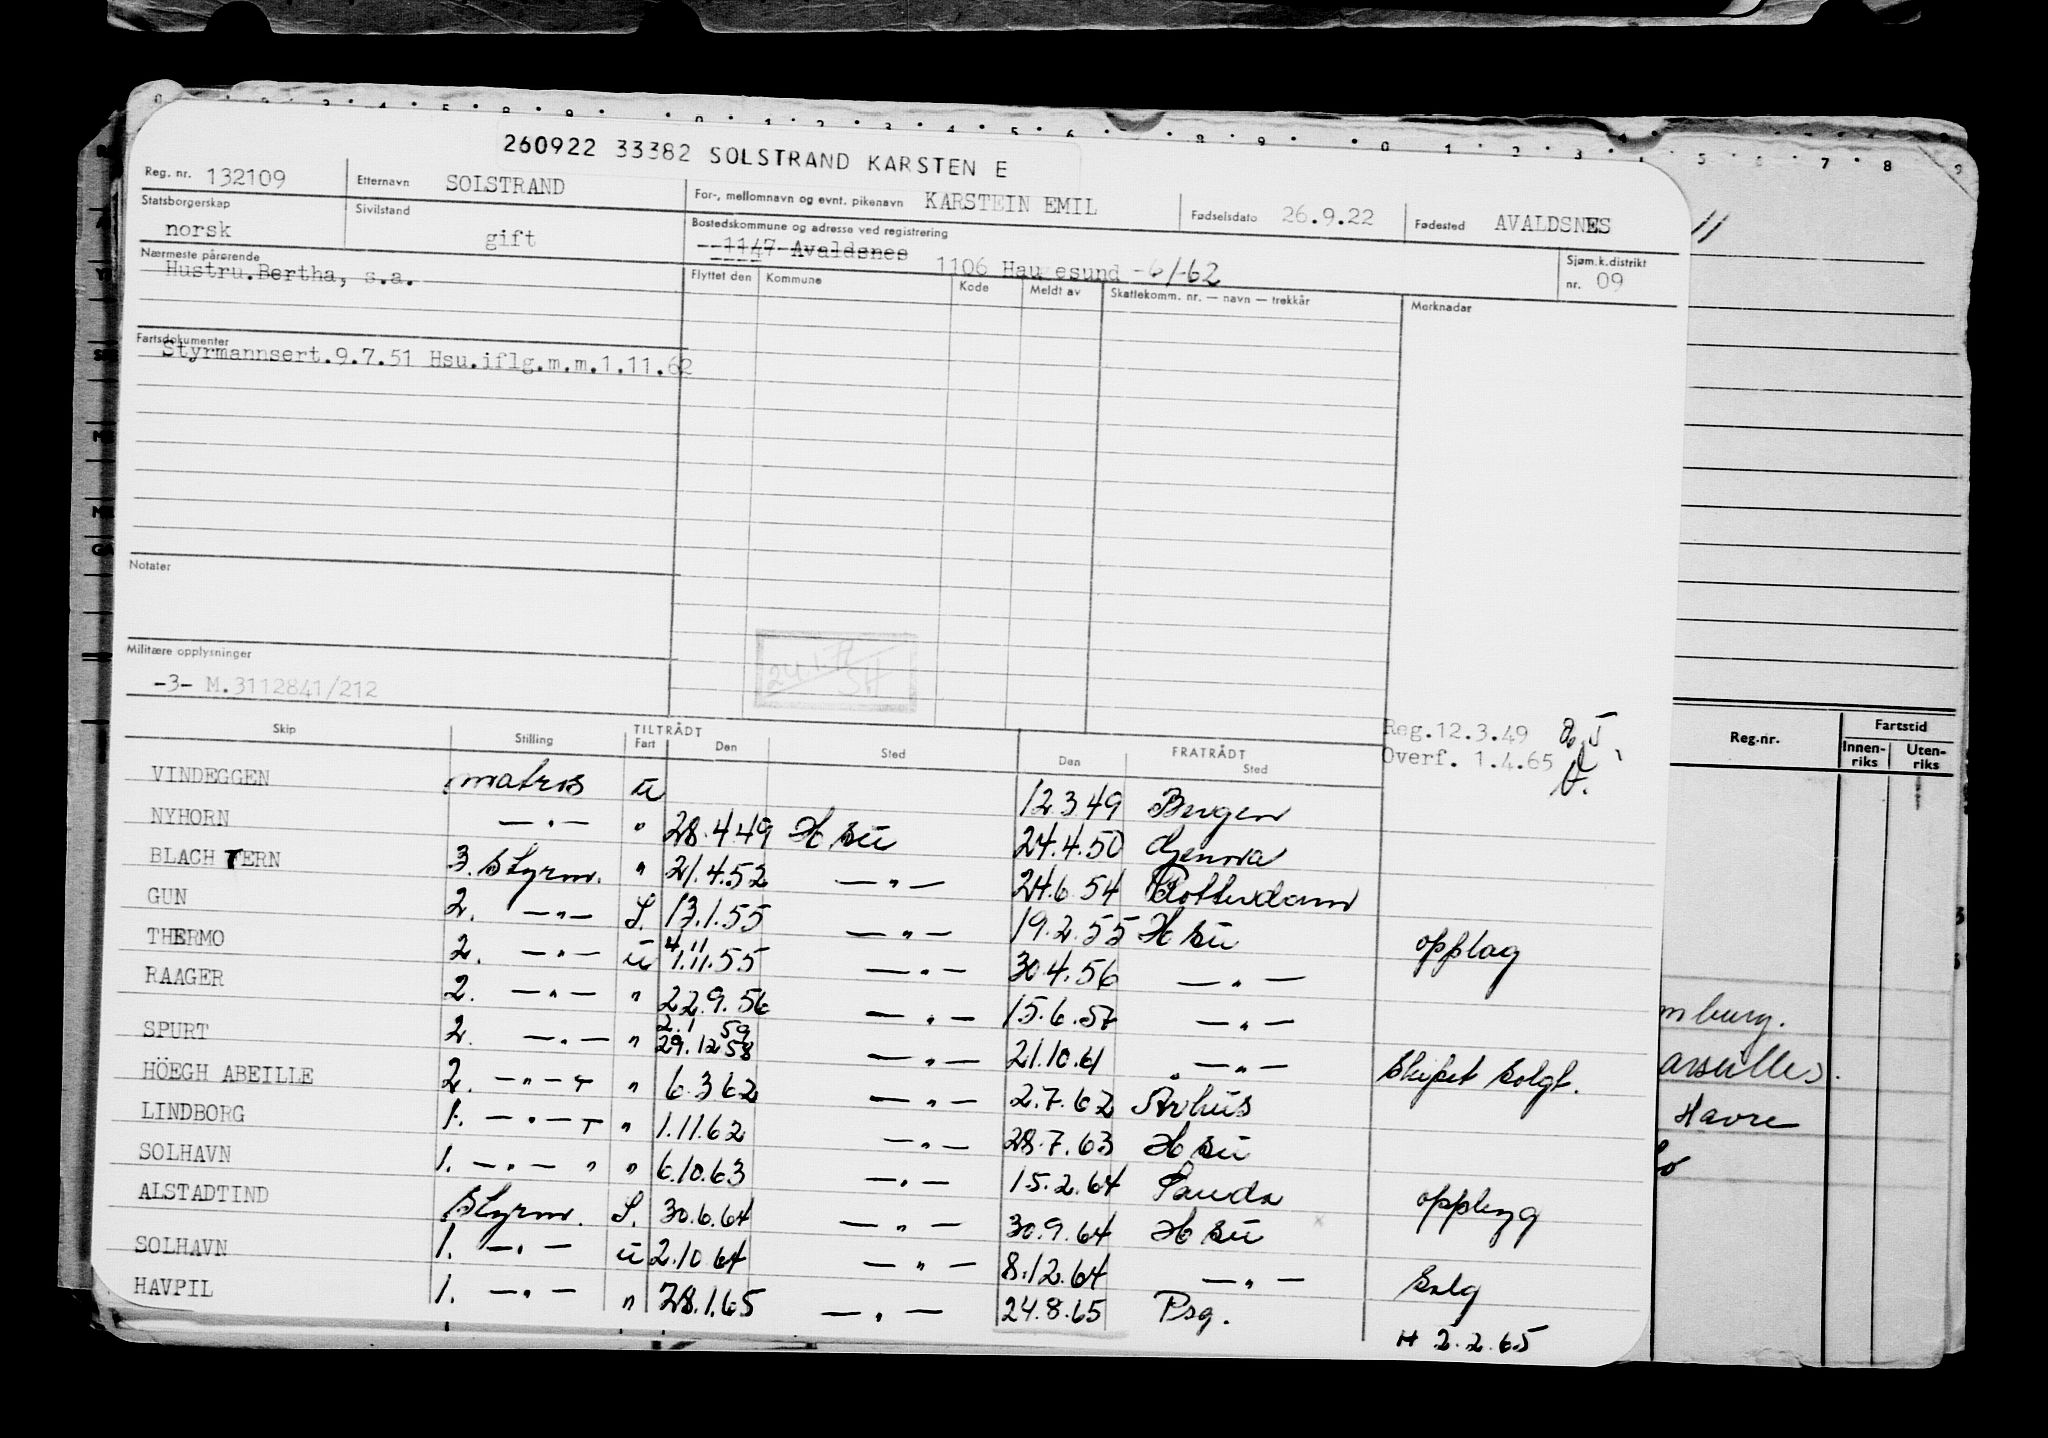 260922 33382 SOLSTRAND KARSTEN E
Reg. nr. 132109 Etternavn SOLSTRAND For-, mellomnavn og evnt. pikenavn KARSTEIN EMIL Fødselsdato 26.9.22 Fødested AVALDSNES
Statsborgerskap norsk Sivilstand gift Bostedskommune og adresse ved registrering 1147 Avaldsnes 1106 Haugesund -6/-62 Sjøm.k.distrikt nr. 09
Nærmeste pårørende Flyttet den Kommune Kode Meldt av Skattekomm. nr. — navn — trekkår Merknader
Hustru.Bertha, s.a.
Fartsdokumenter
Styrmannsert.9.7.51 Hsu.iflg.m.m.1.11.62
Notater
Militære opplysninger
-3- M.3112841/212
Reg.12.3.49
Overf. 1.4.65
Skip Stilling TILTRÅDT Fart Den Sted FRATRÅDT Den Sted
VINDEGGEN matros u 12.3.49 Bergen
NYHORN —"— " 28.4.49 H su 24.4.50 Genova
BLACH TERN 3. Styrm. " 21.4.52 —"— 24.6.54 Rotterdam
GUN 2. —"— I. 13.1.55 —"— 19.2.55 H su opplag
THERMO 2. —"— u 4.11 1.11.55 —"— 30.4.56 —"—
RAAGER 2. —"— " 22.9.56 —"— 15.6.57 —"—
SPURT 2. —"— " 2.1 59 29.12 58 —"— 21.10.61 —"— Skipet solgt.
HÖEGH ABEILLE 2. —"— T " 6.3.62 —"— 2.7.62 Århus
LINDBORG 1. —"— T " 1.11.62 —"— 28.7.63 H su
SOLHAVN 1. —"— " " 6.10.63 —"— 15.2.64 Sauda opplegg
ALSTADTIND Styrm. I. 30.6.64 —"— 30.9.64 H su
SOLHAVN 1. —"— u 2.10.64 —"— 8.12.64 —"— Salg
HAVPIL 1. —"— " 28.1.65 —"— 24.8.65 Psg.
H 2.2.65
11
Reg.nr. Fartstid
Innen-riks Uten-riks
mburg.
arseilles.
Havre